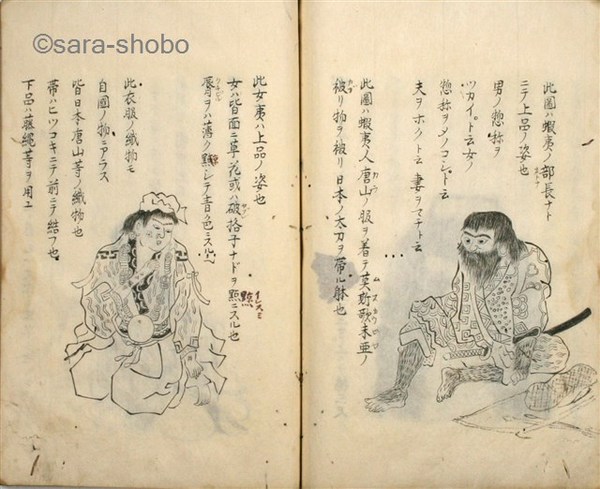 ©sara-shobo
此圖ハ蝦夷ノ部長ナト
ニテ上品ノ姿也
男ノ惣称ヲ
ツカイ。ト云女ノ
惣称ヲメノコシト云
夫ヲホクト云妻ヲマチト云
此圖ハ蝦夷人唐山ノ服ヲ着テ莫斯歌未亜ノ
被リ物ヲ被リ日本ノ太刀ヲ帯ル躰也
此女夷ハ上品ノ姿也
女ハ皆面ニ草花或ハ破格子ナドヲ點ニスル也
唇ヲハ薄ク點シテ青色ニスル也
此衣服ノ織物モ
自國ノ物ニアラス
皆日本唐山等ノ織物也
帯ハヒツコキニテ前ニテ結フ也
下品ハ藤縄等ヲ用ユ